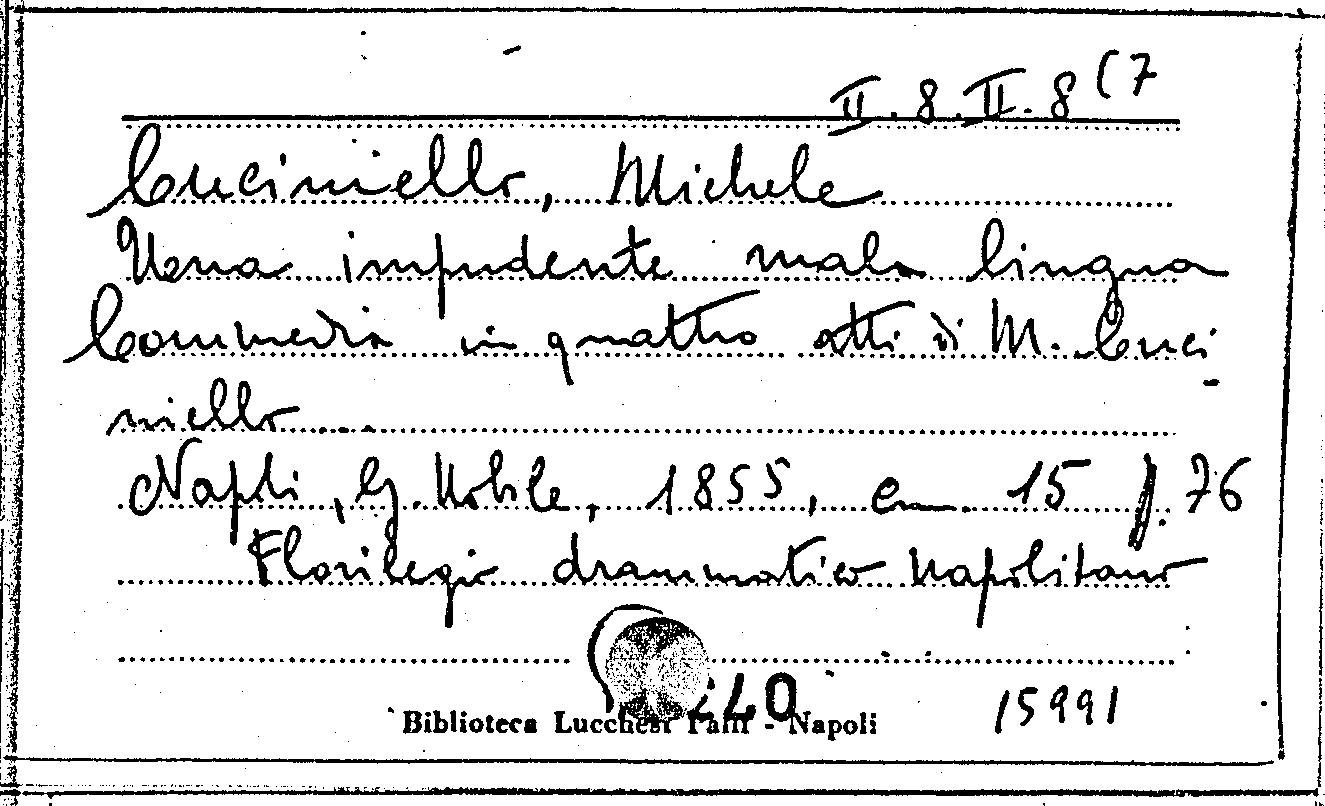 II.8.II.8(7
Cuciniello, Michele
Una impudente mala lingua
Commedia in quattro atti di M. Cuci
niello....
Napoli, G. Nobile, 1855, cm. 15 p. 76
Florilegio drammatico napolitano
40
Biblioteca Lucchesi Palli - Napoli
15991